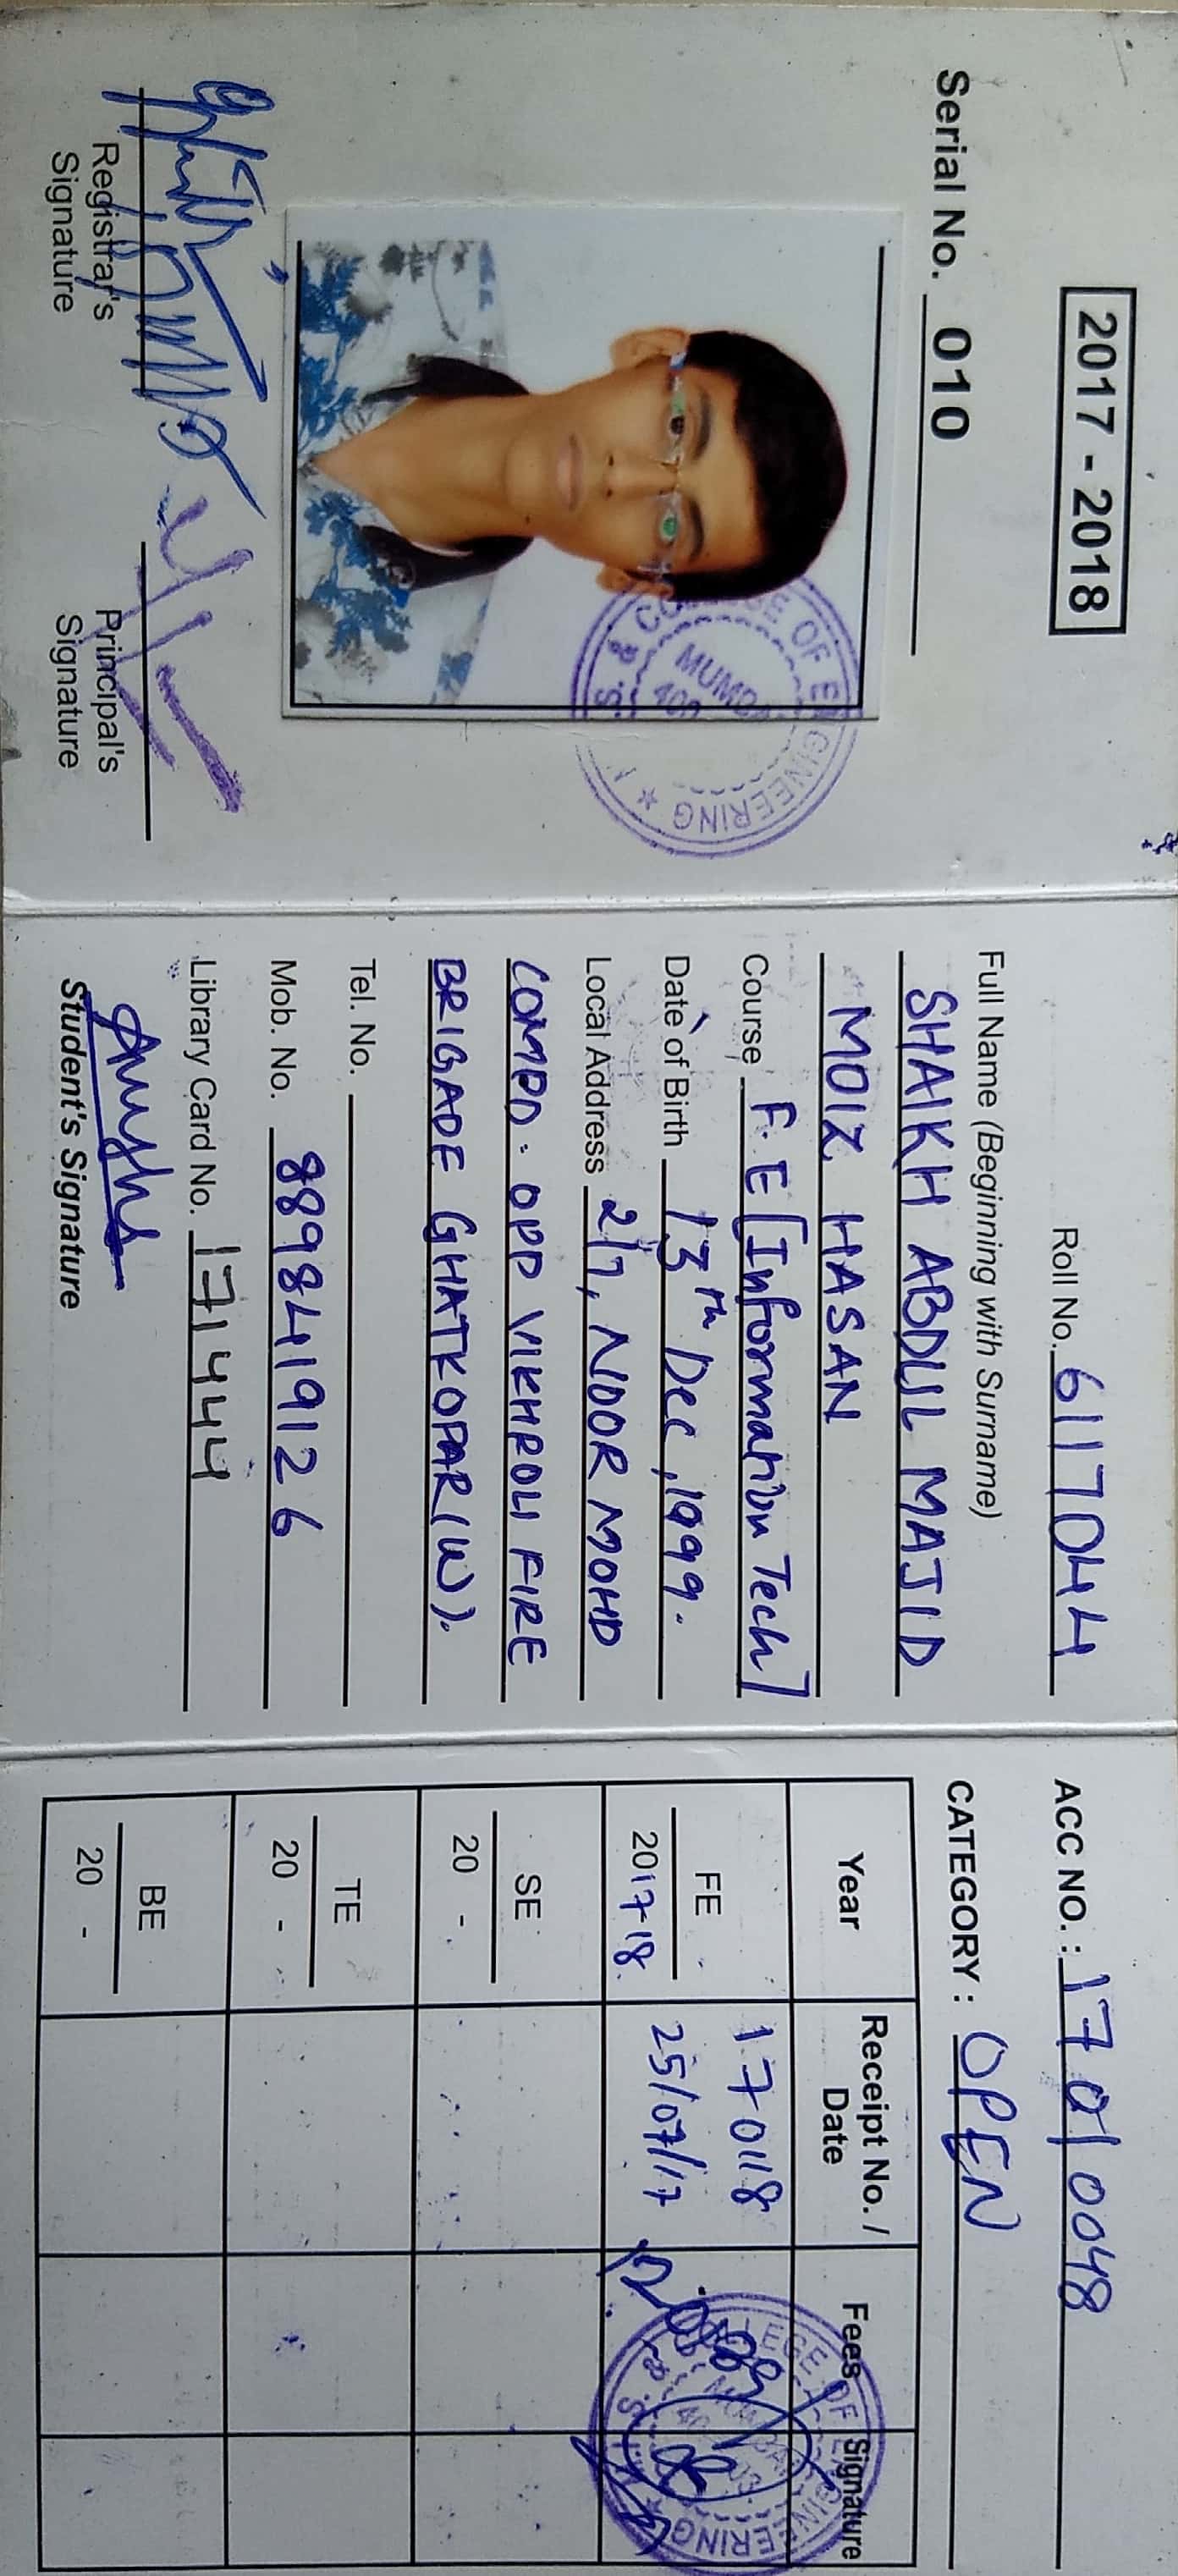 2017 - 2018
Serial No. 010
COLLEGE OF ENGINEERING
MUMBAI
Registrar's
Signature
Principal's
Signature
Roll No. 6117044
Full Name (Beginning with Surname)
SHAIKH ABDUL MAJID
MOIZ HASAN
Course F.E [Information Tech]
Date of Birth 13th Dec, 1999.
Local Address 217, NOOR MOHD
COMPD. OPP VIKHROLI FIRE
BRIGADE GHATKOPAR(W).
Tel. No.
Mob. No. 8898419126
Library Card No. 171444
Student's Signature
ACC NO. : 17010048
CATEGORY : OPEN
Year Receipt No. / Date Fees Signature
FE 170118
2017-18 25/07/17
SE
20 -
TE
20 -
BE
20 -